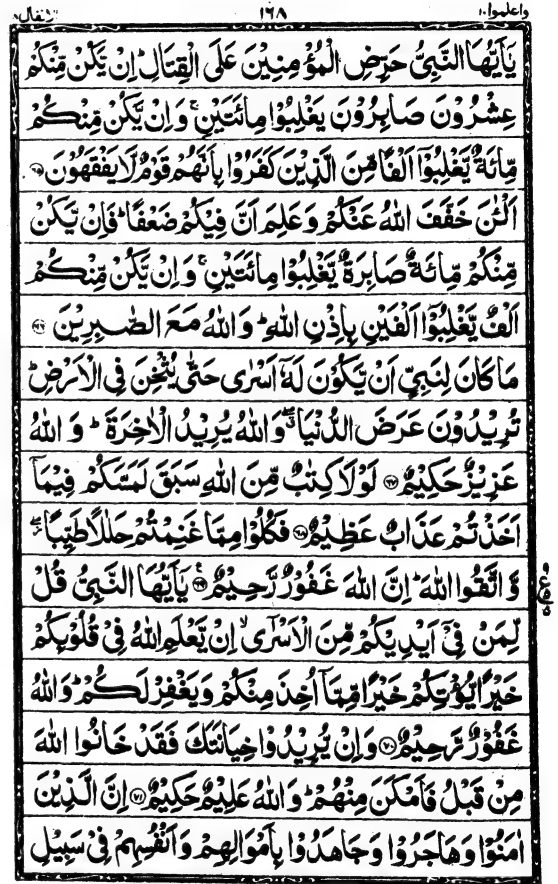 واعلموا١٠ ١٦٨ الانفال٨
يٰۤاَيُّهَا النَّبِىُّ حَرِّضِ الْمُؤْمِنِيْنَ عَلَى الْقِتَالِ ؕ اِنْ يَّكُنْ مِّنْكُمْ
عِشْرُوْنَ صَابِرُوْنَ يَغْلِبُوْا مِائَتَيْنِ ۚ وَاِنْ يَّكُنْ مِّنْكُمْ
مِّائَةٌ يَّغْلِبُوْۤا اَلْفًا مِّنَ الَّذِيْنَ كَفَرُوْا بِاَنَّهُمْ قَوْمٌ لَّا يَفْقَهُوْنَ ۝۶۵
اَلْـٰٔنَ خَفَّفَ اللّٰهُ عَنْكُمْ وَعَلِمَ اَنَّ فِيْكُمْ ضَعْفًا ؕ فَاِنْ يَّكُنْ
مِّنْكُمْ مِّائَةٌ صَابِرَةٌ يَّغْلِبُوْا مِائَتَيْنِ ۚ وَاِنْ يَّكُنْ مِّنْكُمْ
اَلْفٌ يَّغْلِبُوْۤا اَلْفَيْنِ بِاِذْنِ اللّٰهِ ؕ وَاللّٰهُ مَعَ الصّٰبِرِيْنَ ۝۶۶
مَا كَانَ لِنَبِىٍّ اَنْ يَّكُوْنَ لَهٗۤ اَسْرٰى حَتّٰى يُثْخِنَ فِى الْاَرْضِ ؕ
تُرِيْدُوْنَ عَرَضَ الدُّنْيَا ۖ وَاللّٰهُ يُرِيْدُ الْاٰخِرَةَ ؕ وَاللّٰهُ
عَزِيْزٌ حَكِيْمٌ ۝۶۷ لَوْلَا كِتٰبٌ مِّنَ اللّٰهِ سَبَقَ لَمَسَّكُمْ فِيْمَاۤ
اَخَذْتُمْ عَذَابٌ عَظِيْمٌ ۝۶۸ فَكُلُوْا مِمَّا غَنِمْتُمْ حَلٰلًا طَيِّبًا ۖ
وَّاتَّقُوا اللّٰهَ ؕ اِنَّ اللّٰهَ غَفُوْرٌ رَّحِيْمٌ ۝۶۹ يٰۤاَيُّهَا النَّبِىُّ قُلْ
لِّمَنْ فِىْۤ اَيْدِيْكُمْ مِّنَ الْاَسْرٰٓى ۙ اِنْ يَّعْلَمِ اللّٰهُ فِىْ قُلُوْبِكُمْ
خَيْرًا يُّؤْتِكُمْ خَيْرًا مِّمَّاۤ اُخِذَ مِنْكُمْ وَيَغْفِرْ لَكُمْ ؕ وَاللّٰهُ
غَفُوْرٌ رَّحِيْمٌ ۝۷۰ وَاِنْ يُّرِيْدُوْا خِيَانَتَكَ فَقَدْ خَانُوا اللّٰهَ
مِنْ قَبْلُ فَاَمْكَنَ مِنْهُمْ ؕ وَاللّٰهُ عَلِيْمٌ حَكِيْمٌ ۝۷۱ اِنَّ الَّذِيْنَ
اٰمَنُوْا وَهَاجَرُوْا وَجَاهَدُوْا بِاَمْوَالِهِمْ وَاَنْفُسِهِمْ فِىْ سَبِيْلِ